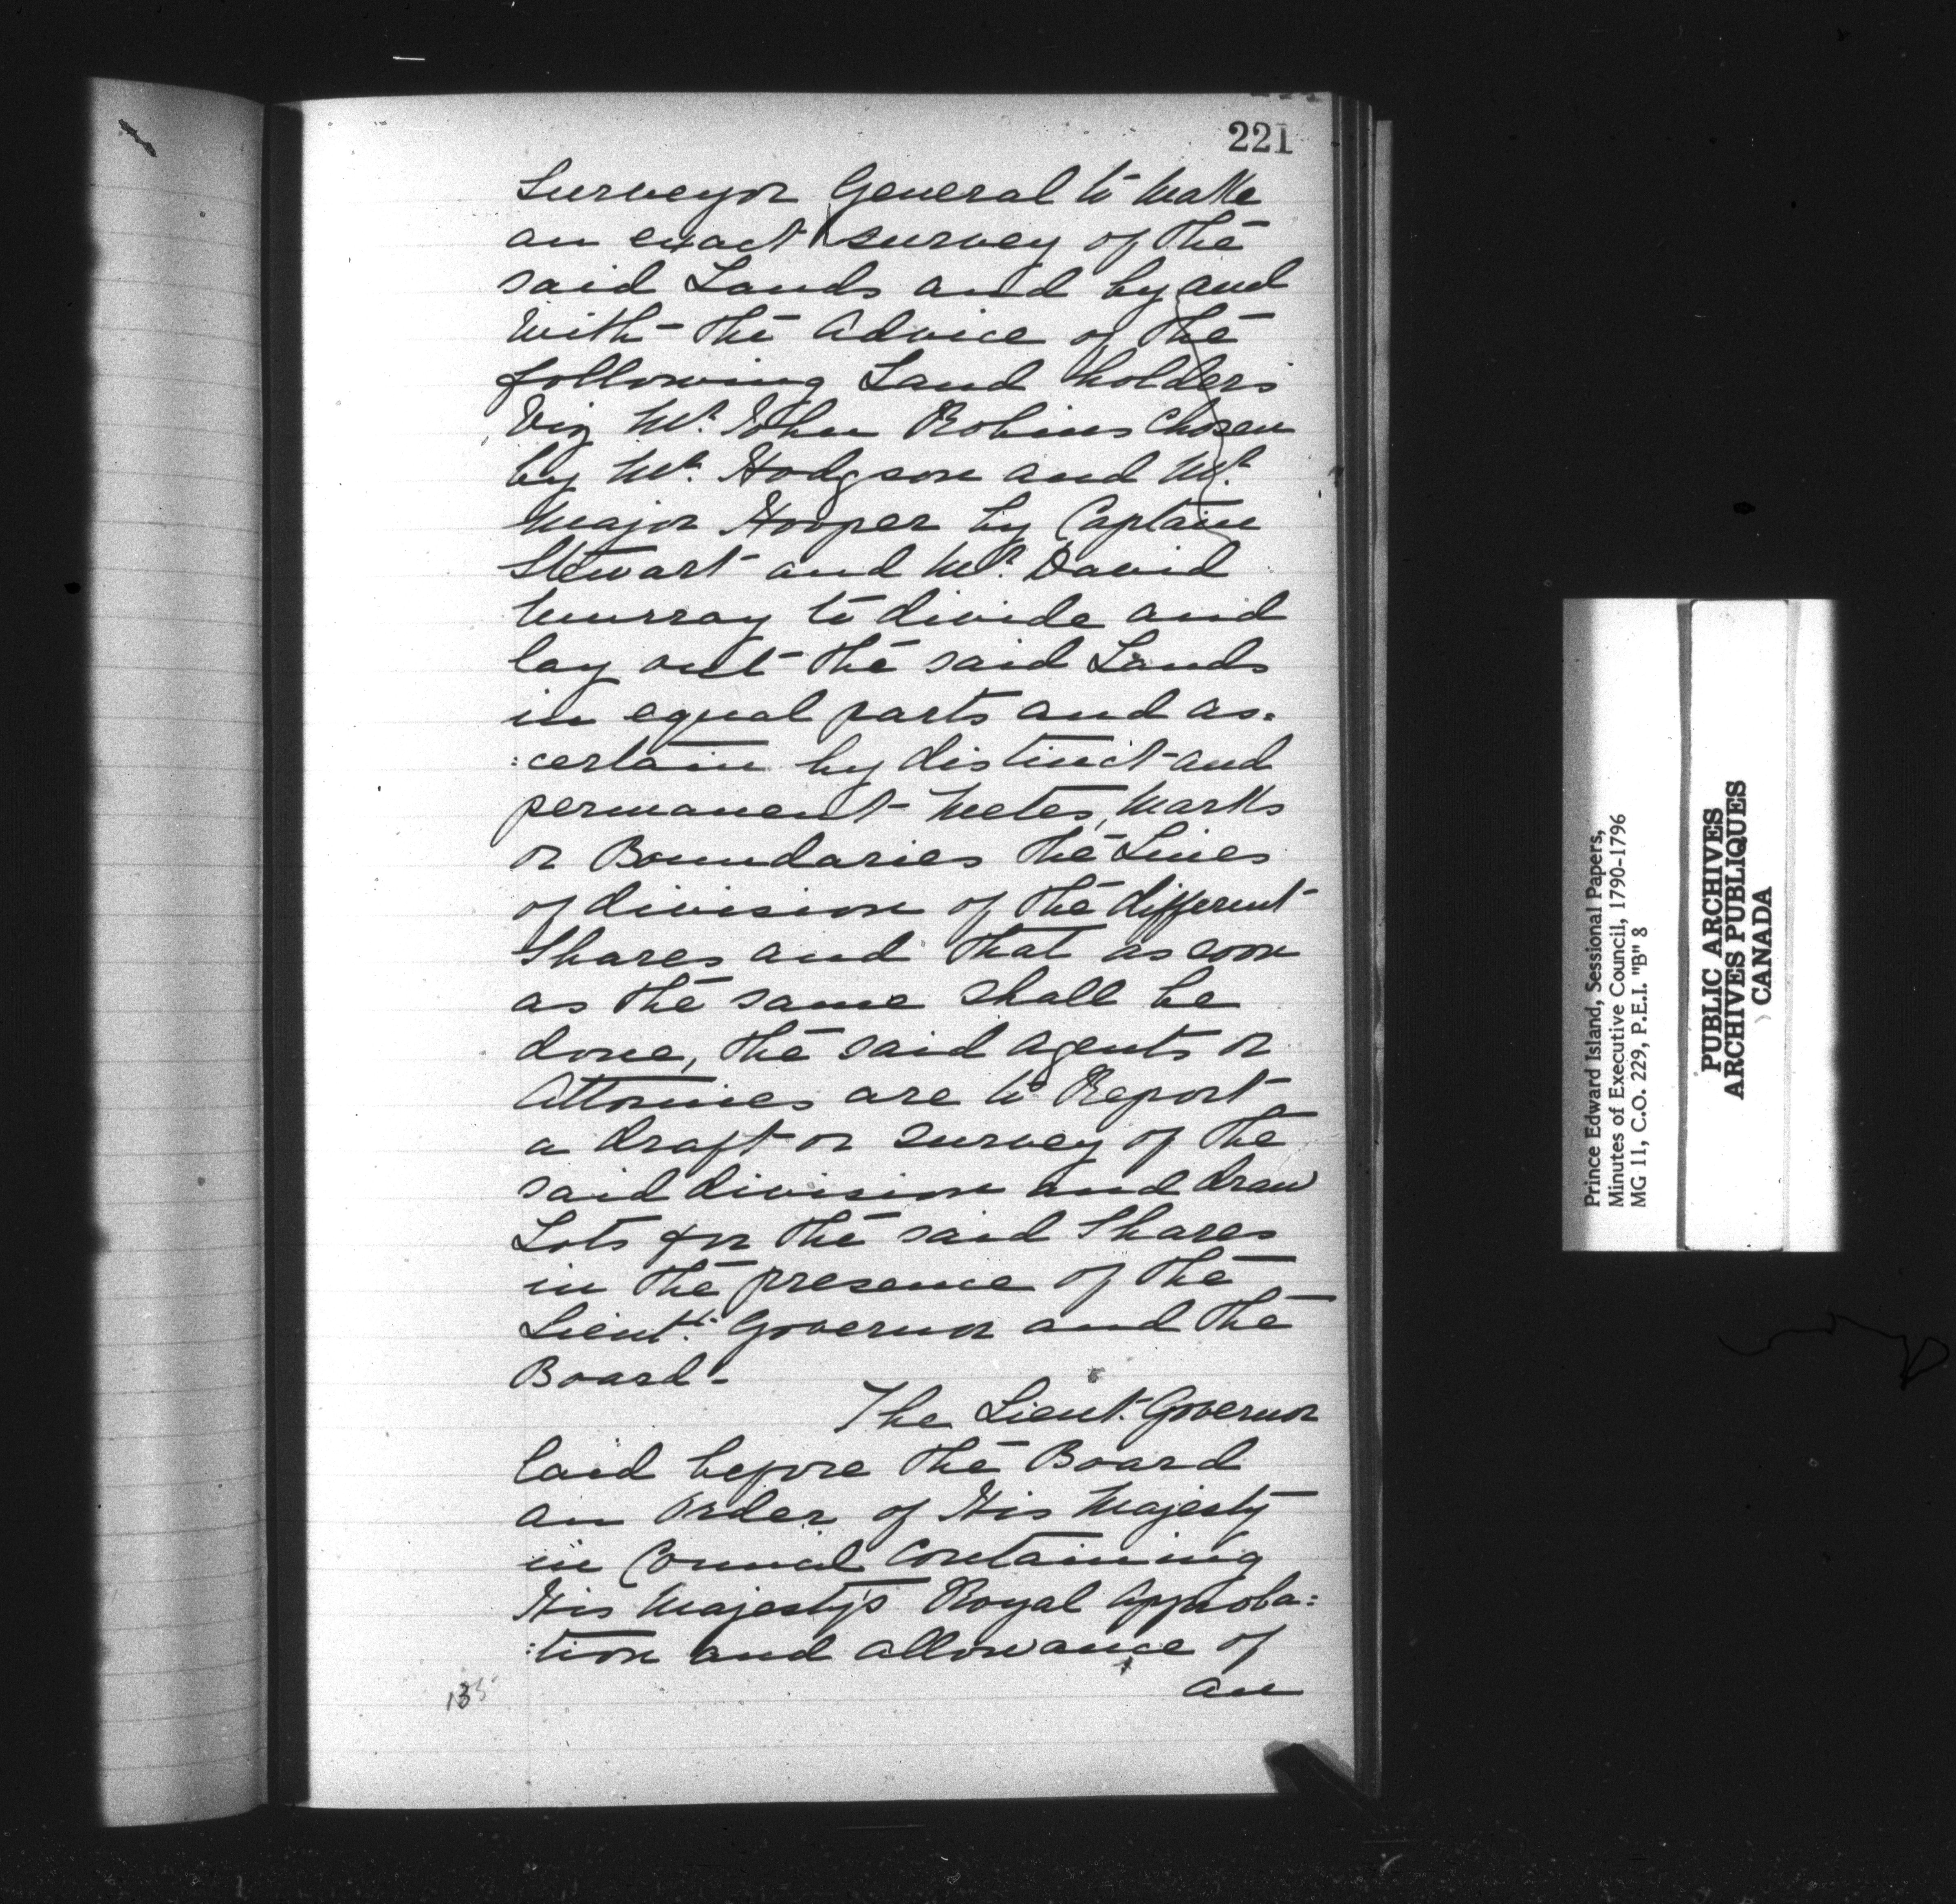 221
Surveyor General to make
an exact survey of the
said Lands and by and
with the Advice of the
following Land holders
Viz Mr. John Robins chosen
by Mr. Hodgson and Mr.
Major Hooper by Captain
Stewart and Mr. David
Murray to divide and
lay out the said Lands
in equal parts and as:
:certain by distinct and
permanent Metes, Marks
or Boundaries the Lines
of division of the different
Shares and that as soon
as the same shall be
done, the said agents or
Attornies are to Report
a draft or survey of the
said division and draw
Lots for the said Shares
in the presence of the
Lieut. Governor and the
Board-
The Lieut. Governor
laid before the Board
an Order of His Majesty
in Council containing
His Majesty's Royal Approba:
:tion and allowance of
an
135
Prince Edward Island, Sessional Papers,
Minutes of Executive Council, 1790-1796
MG 11, C.O. 229, P.E.I. "B" 8
PUBLIC ARCHIVES
ARCHIVES PUBLIQUES
CANADA